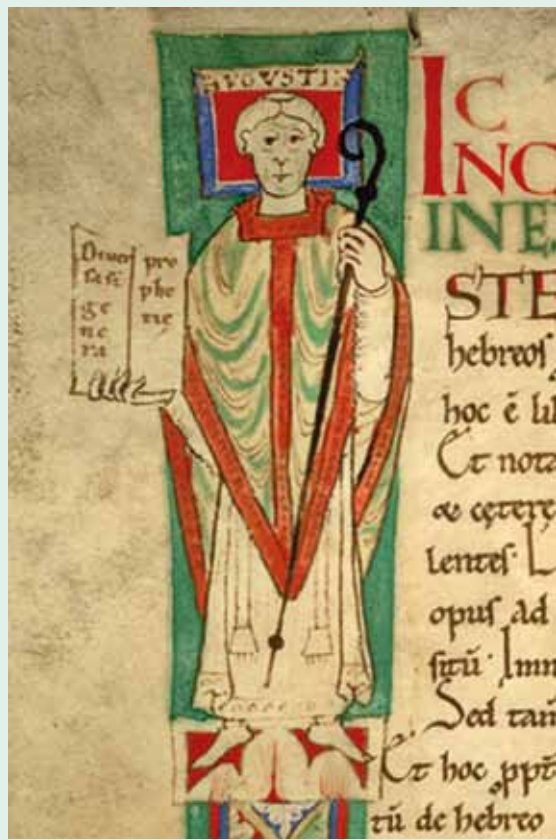 AVGVSTIN
Diver
sa sūt
ge
ne
ra
pro
phe
tię
IC
INC
INE
STE
hebreos
hoc ē lib
Et nota
æ cęterę
lentes· L
opus ad
sitū· Imm
Sed tam
Et hoc ppt
tū de hebreo